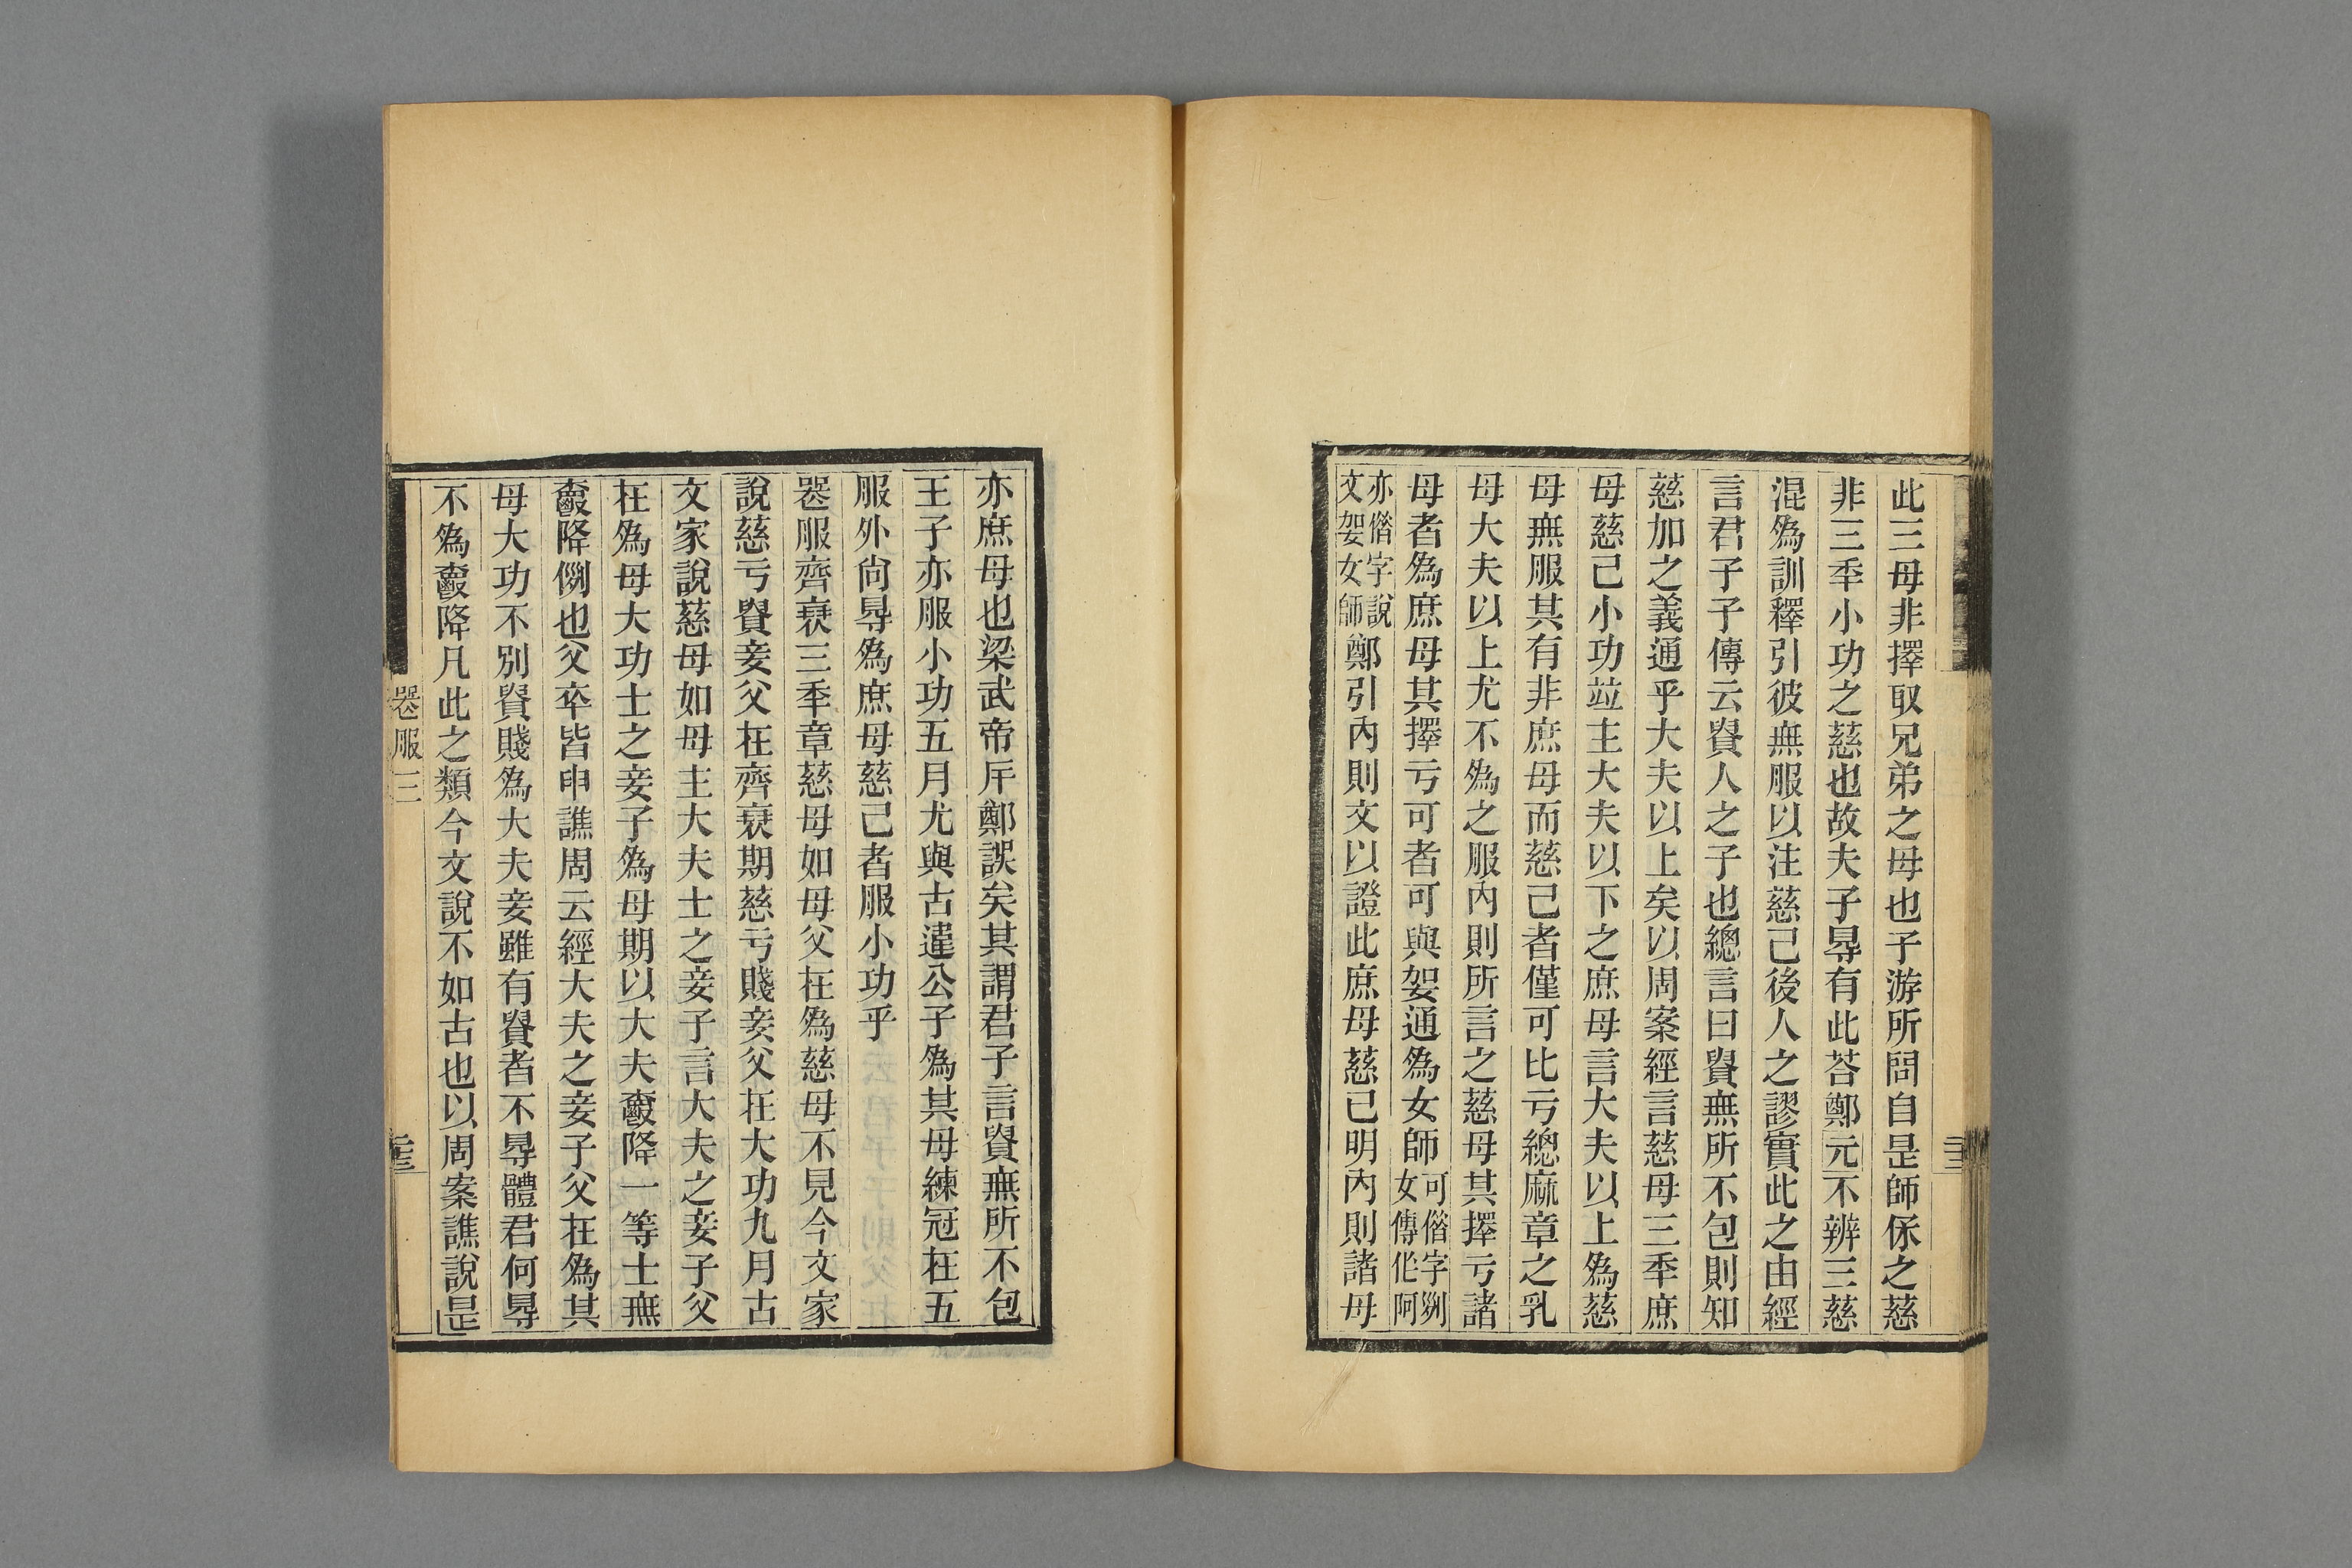 此三母非擇取兄弟之母也子游所問自是師保之慈
非三秊小功之慈也故夫子㝵有此荅鄭元不辨三慈
混爲訓釋引彼無服以注慈己後人之謬實此之由經
言君子子傳云貴人之子也總言曰貴無所不包則知
慈加之義通乎大夫以上矣以周案經言慈母三秊庶
母慈己小功竝主大夫以下之庶母言大夫以上爲慈
母無服其有非庶母而慈己者僅可比亏總麻章之乳
母大夫以上尤不爲之服內則所言之慈母其擇亏諸
母者爲庶母其擇亏可者可與妿通爲女師可偺字剟
女傳作阿
亦偺字說
文妿女師鄭引內則文以證此庶母慈已明內則諸母
亦庶母也梁武帝斥鄭誤矣其謂君子言貴無所不包
王子亦服小功五月尤與古違公子爲其母練冠在五
服外尙㝵爲庶母慈己者服小功乎
喪服齊衰三秊章慈母如母父在爲慈母不見今文家
說慈亏貴妾父在齊衰期慈亏賤妾父在大功九月古
文家說慈母如母主大夫士之妾子言大夫之妾子父
在爲母大功士之妾子爲母期以大夫尊降一等士無
尊降例也父卒皆申譙周云經大夫之妾子父在爲其
母大功不別貴賤爲大夫妾雖有貴者不㝵體君何㝵
不爲尊降凡此之類今文說不如古也以周案譙說是
喪服三